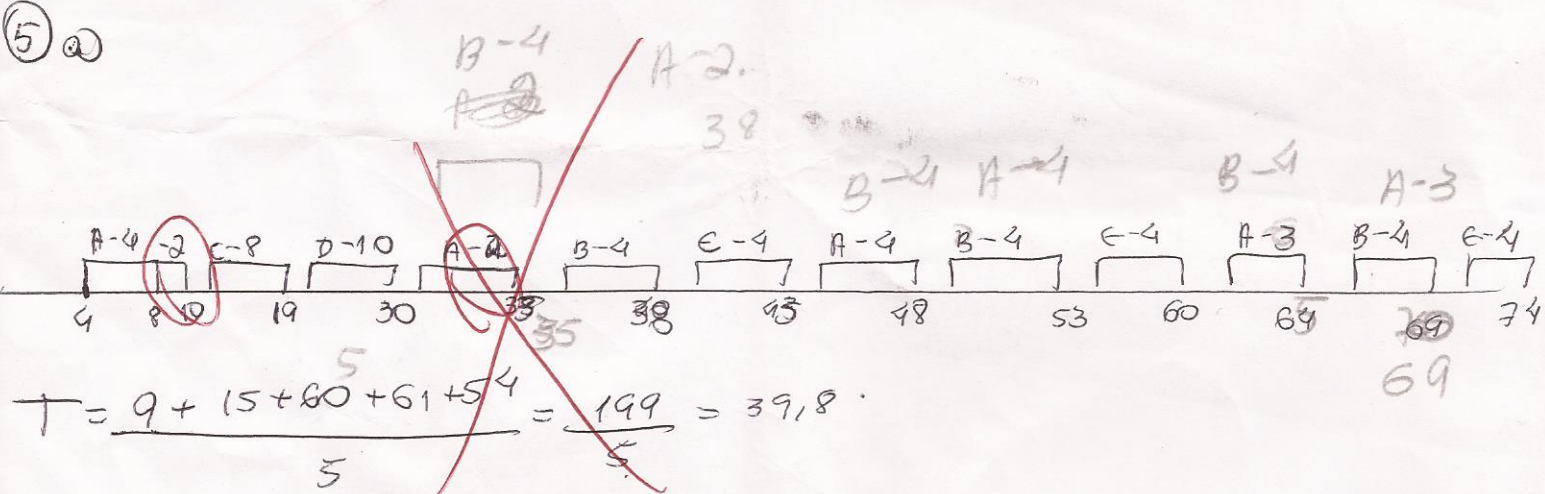 5 a
B-4 A-2.
38
B-4 A-4 B-4 A-3
A-4 -2 C-8 D-10 A-2 B-4 E-4 A-4 B-4 E-4 A-3 B-4 E-4
4 8 10 19 30 33 35 38 43 48 53 60 64 69 74
5 69
T = 9 + 15 + 60 + 61 + 54 = 199 = 39,8
5 5